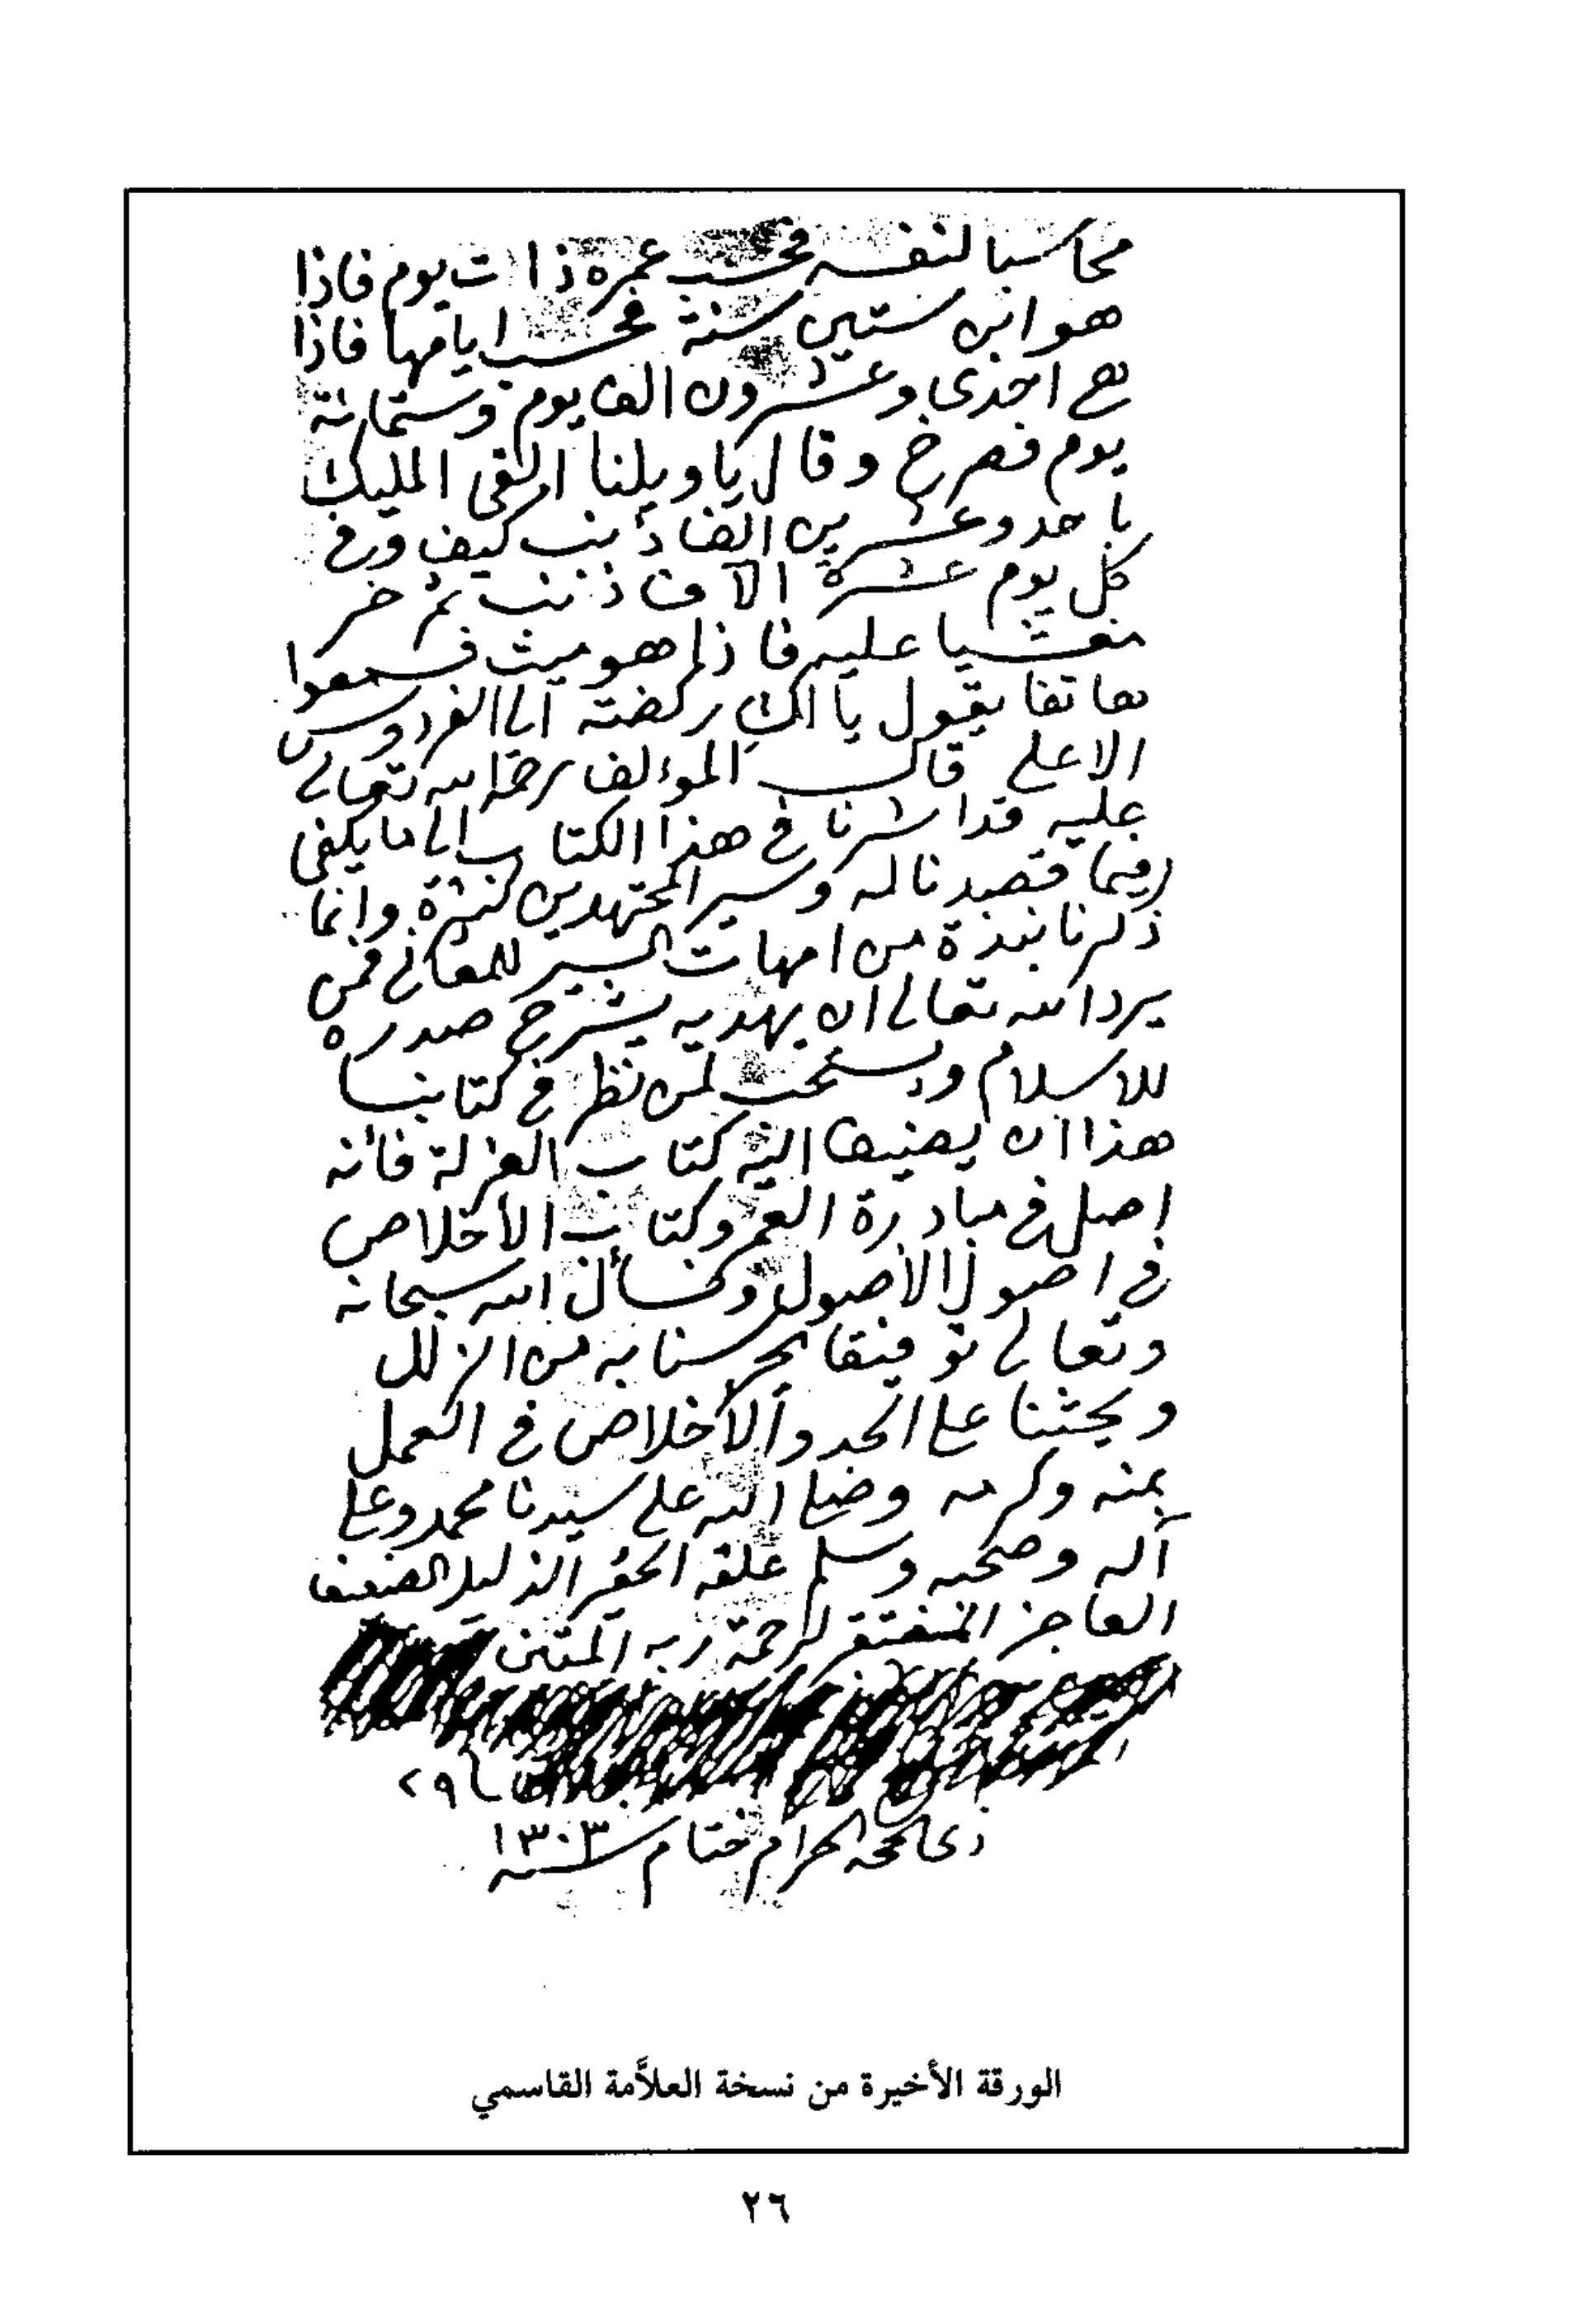 محاسبا لنفسه فحسب عمره ذات يوم فاذا
هو ابن ستين سنة فحسب ايامها فاذا
هي احدى وعشرون الف يوم وستمائة
يوم فصرخ وقال يا ويلنا القى المليك
باحد وعشرين الف ذنب كيف وفي
كل يوم عشرة الآف ذنب ثم خر
مغشيا عليه فاذا هو ميت فسمعوا
هاتفا يقول يا لك ركضة الى الفردوس
الاعلى قال المؤلف رحمة الله تعالى
عليه قد اشرنا في هذا الكتاب الى ما يكفى
فيما قصدنا له وسير المجتهدين كثيرة وانما
ذكرنا نبذة من امهات السير للمعاني فمن
يرد الله تعالى ان يهديه يشرح صدره
للاسلام ويستحب لمن نظر في كتابنا
هذا ان يضيف اليه كتاب العزلة فأنه
اصل في مبادرة العمر وكتاب الأخلاص
في اصول الأصول ونسأل الله سبحانه
وتعالى توفيقا يحرسنا به من الزلل
ويحثنا على الجد والأخلاص في العمل
بمنه وكرمه وصلى الله على سيدنا محمد وعلى
آله وصحبه وسلم علقه الحقير الذليل الضعيف
العاجز المفتقر لرحمة ربه
٢٩
ذي الحجة الحرام ختام سنة ١٣٠٣
الورقة الأخيرة من نسخة العلاَّمة القاسمي
٢٦